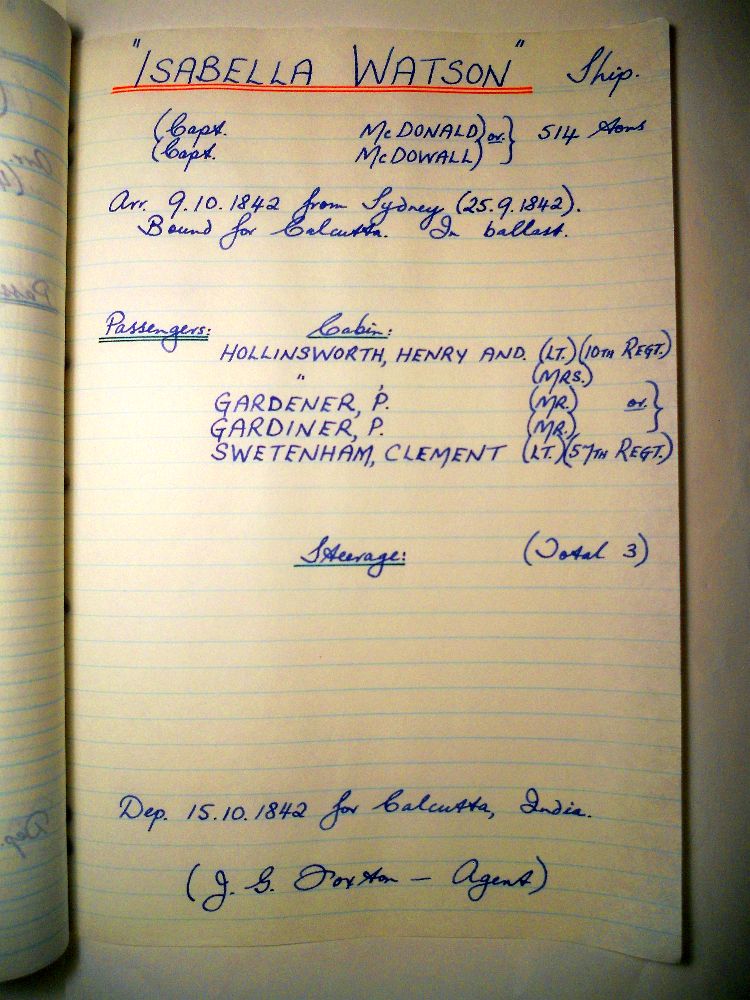 "ISABELLA WATSON" Ship.
(Capt. McDONALD) or } 514 tons
(Capt. McDOWALL)
Arr. 9.10.1842 from Sydney (25.9.1842).
Bound for Calcutta. In ballast.
Passengers: Cabin:
HOLLINSWORTH, HENRY AND. (LT.) (10TH REGT.)
" , (MRS.)
GARDENER, P. (MR.) or }
GARDINER, P. (MR.)
SWETENHAM, CLEMENT (LT.) (57TH REGT.)
Steerage: (Total 3)
Dep. 15.10.1842 for Calcutta, India.
(J. G. Foxton - Agent)